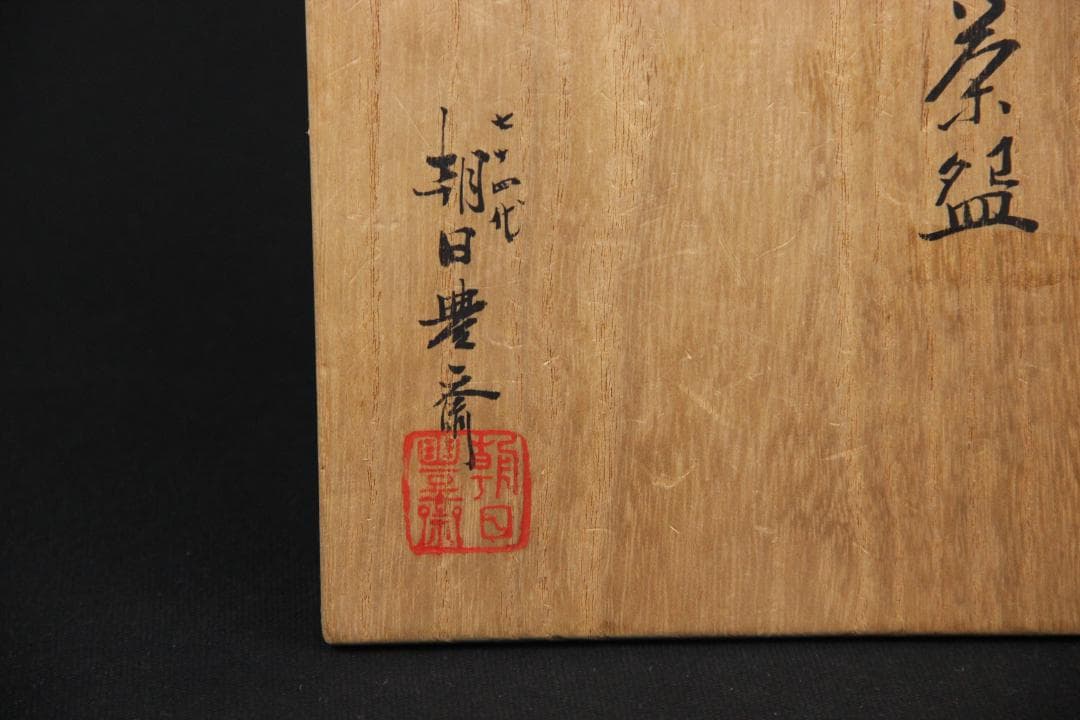 茶盌
七十四代
朝日豊斎
朝日
豊斎